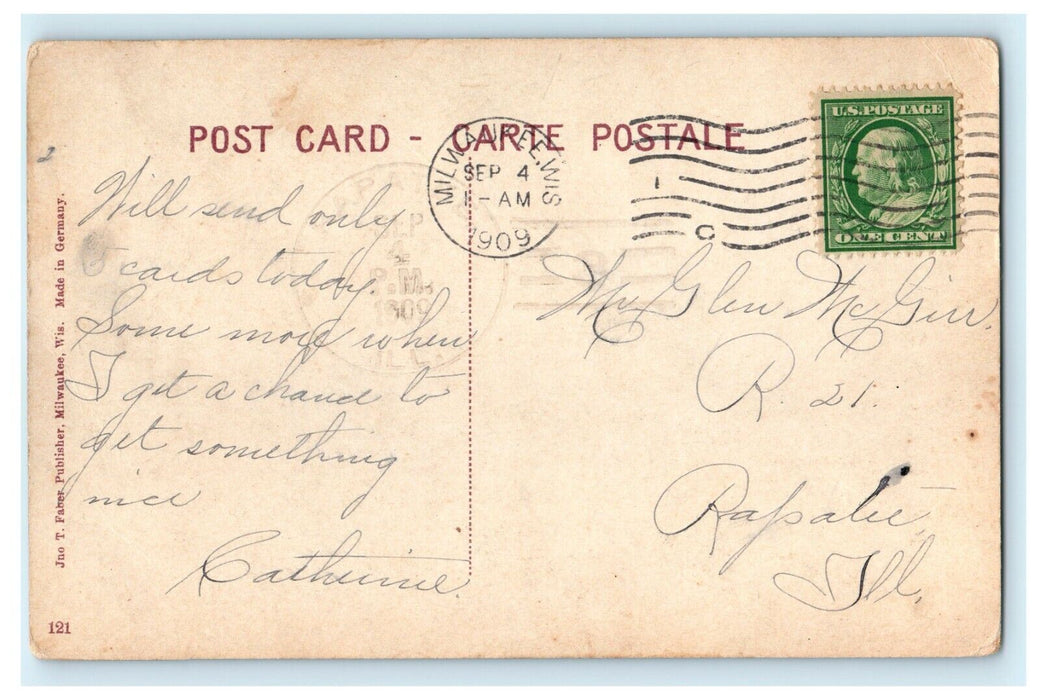 POST CARD - CARTE POSTALE
U.S. POSTAGE
ONE CENT
MILWAUKEE, WIS
SEP 4
1-AM
1909
1
C
SEP
P.M.
1909
ILL.
2
Will send only
6 cards today.
Some more when
I get a chance to
get something
nice
Catherine.
Mr Glen McGirr.
R. 21.
Rapatee,
Ill.
Jno T. Faber Publisher, Milwaukee, Wis. Made in Germany.
121